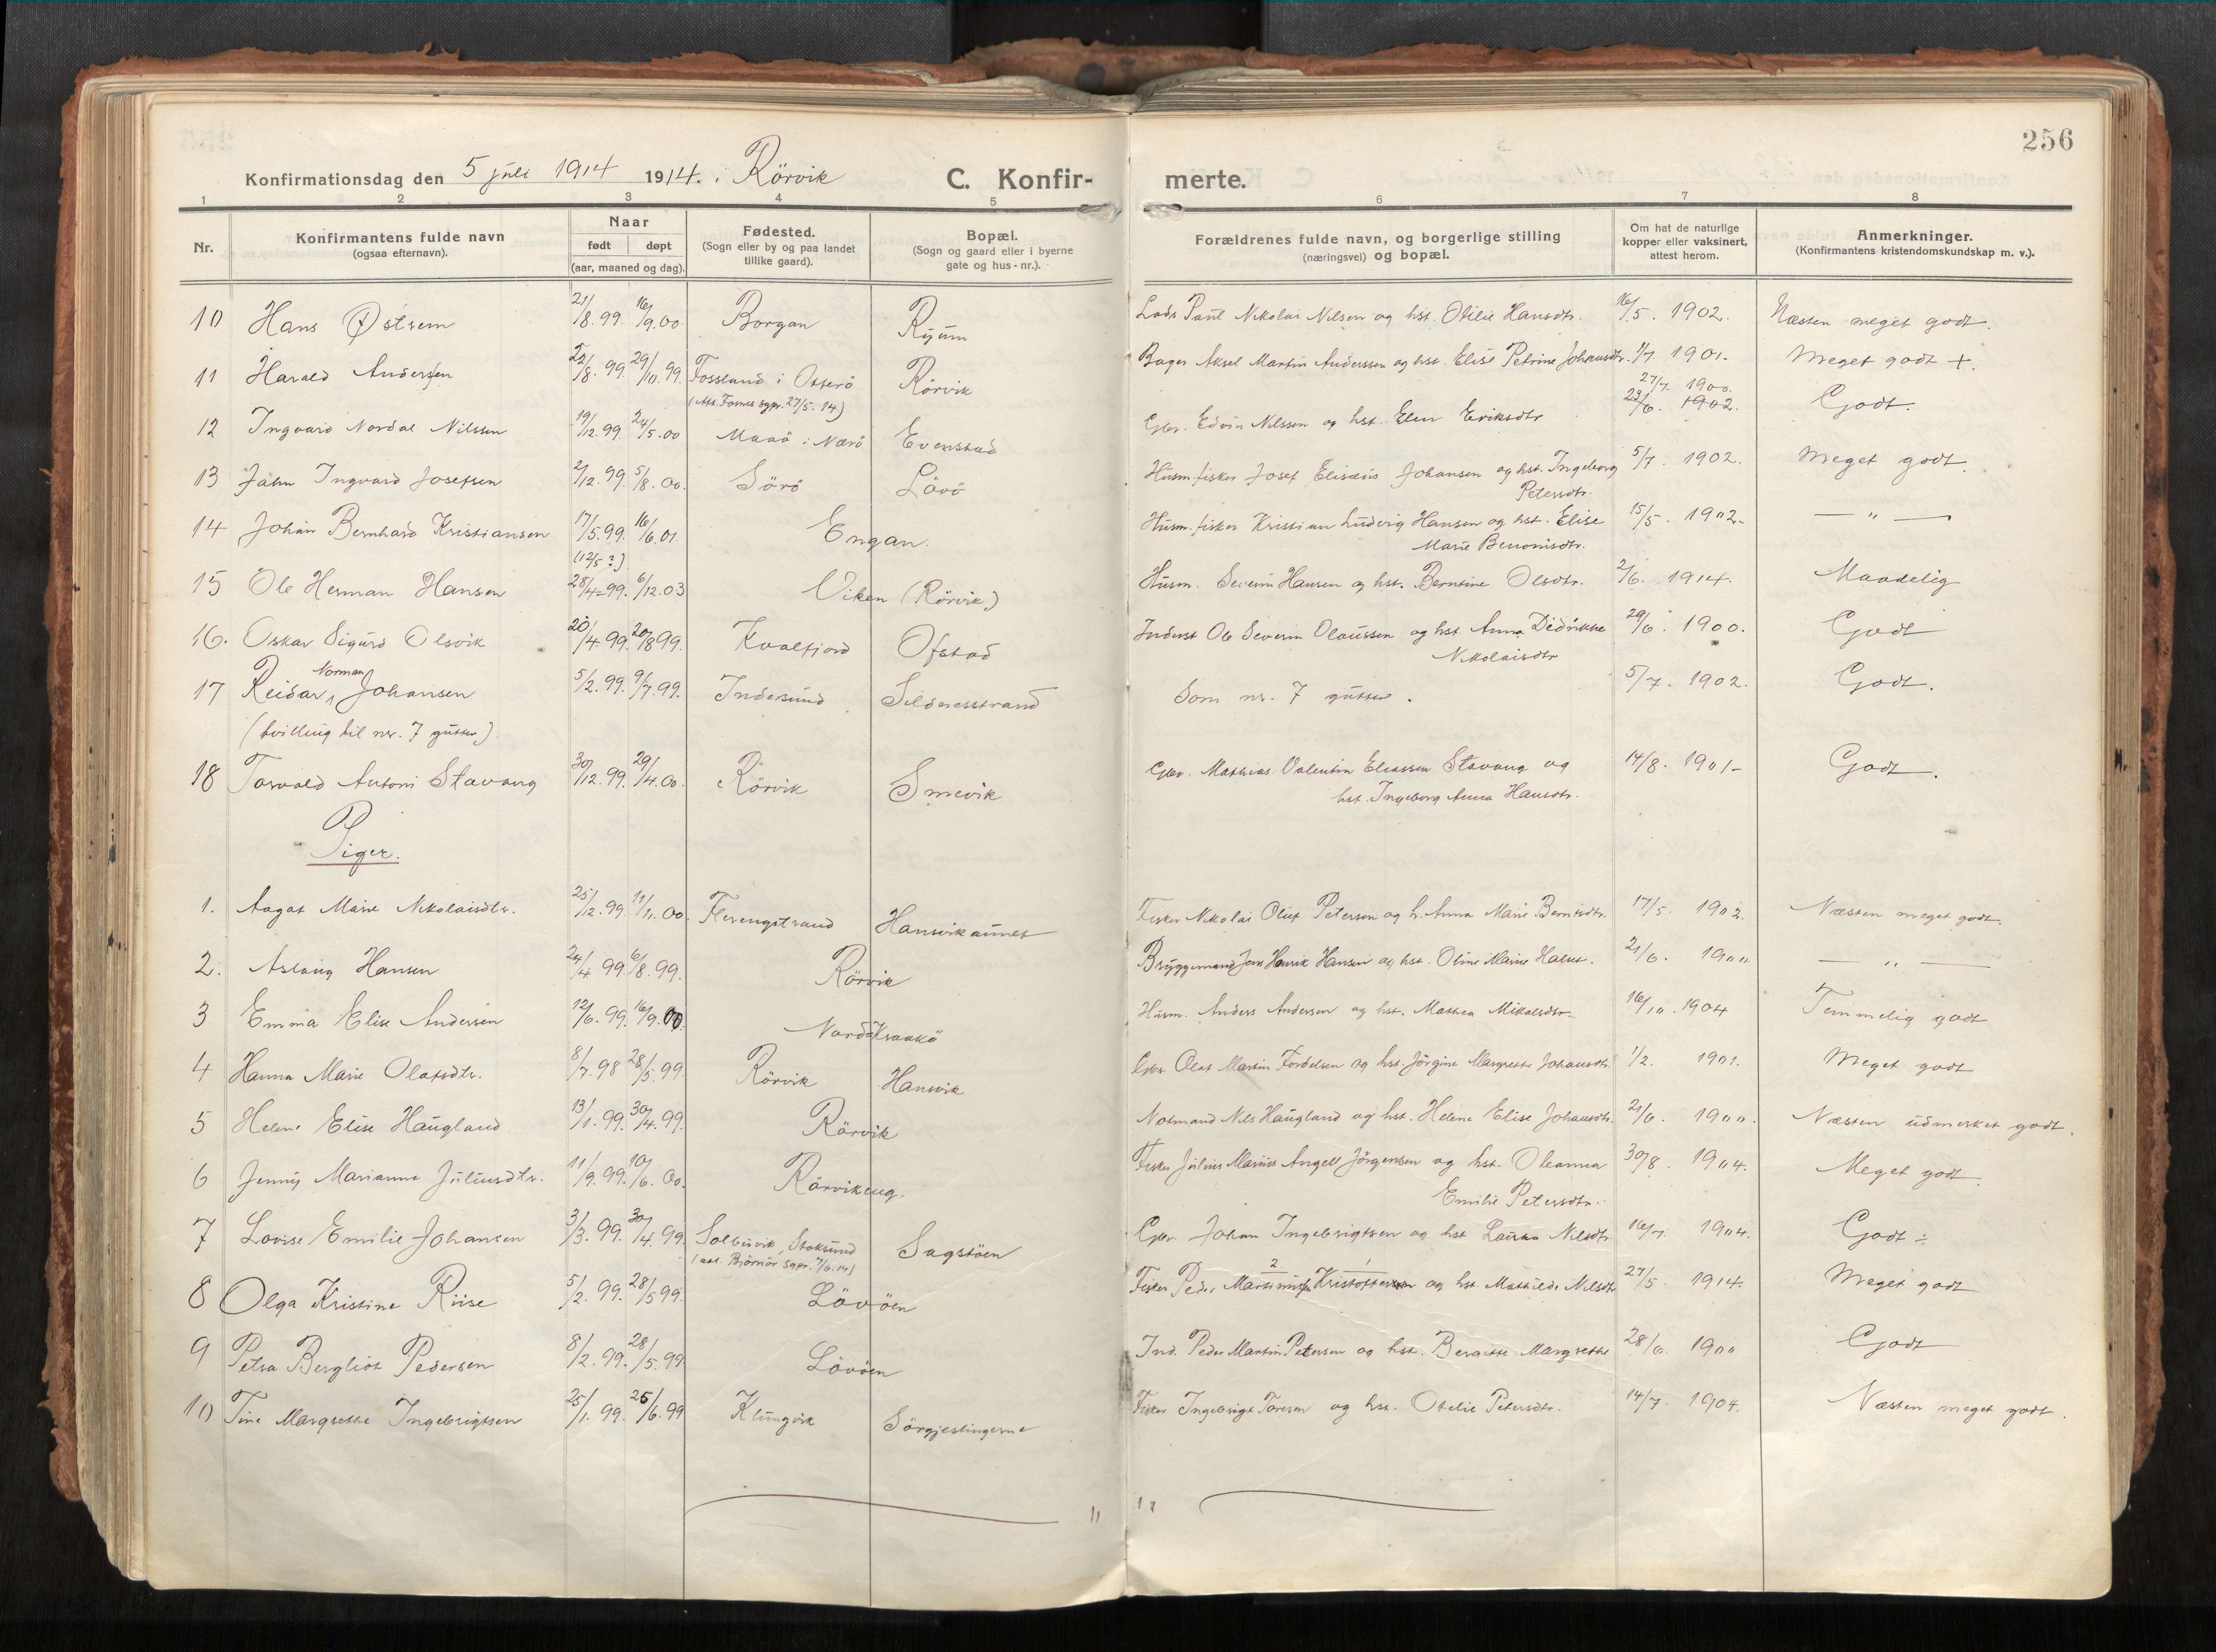 256
Konfirmationsdag den 5 juli 1914 1914. i Rörvik
C. Konfir- merte.
1 2 3 4 5 6 7 8
Nr.
Konfirmantens fulde navn
(ogsaa efternavn).
Naar
født døpt
(aar, maaned og dag).
Fødested.
(Sogn eller by og paa landet
tillike gaard).
Bopæl.
(Sogn og gaard eller i byerne
gate og hus-nr.).
Forældrenes fulde navn, og borgerlige stilling
(næringsvei) og bopæl.
Om hat de naturlige
kopper eller vaksinert,
attest herom.
Anmerkninger.
(Konfirmantens kristendomskundskap m. v.).
10 Hans Østrem 21/8.99. 16/9.00 Borgan Ryum Lods Paul Nikolai Nilsen og hst. Otilie Hansdtr. 16/5. 1902. Næsten meget godt.
11 Harald Andersen 22/8.99. 29/10.99. Fossland i Otterö Rörvik Bager Aksel Martin Anderssen og hst. Elise Petrine Johansdtr. 1/7 1901. Meget godt +.
(Att. Fosnes sgpr. 27/5.14)
27/7. 1900.
12 Ingvard Nordal Nilssen 19/12.99. 24/5.00 Maaö i Nærö Evenstad Gbr. Edvin Nilssen og hst. Elen Eriksdtr 22/6. 1902. Godt.
13 Jahn Ingvard Josefsen 2/12.99. 5/8.00. Sörö Lövö Husm. fisker Josef Elisæus Johansen og hst. Ingeborg 5/7. 1902. Meget godt.
Petersdtr.
14 Johan Bernhard Kristiansen 17/5.99. 16/6.01 Engan. Husm. fisker Kristian Ludvig Hansen og hst. Elise 15/5. 1902. — " —
(12/5 ?) Marie Benonisdtr.
15 Ole Herman Hansen 28/4 99. 6/12.03 Viken (Rörvik) Husm. Severin Hansen og hst. Berntine Olsdtr. 2/6. 1914. Maadelig
16. Oskar Sigurd Olsvik 20/4.99. 20/8 99. Kvalfjord Ofstad Inderst Ole Severin Olaussen og hst. Anna Didrikke 29/6. 1900. Godt
Nikolaisdtr
Norman
17 Reidar Johansen 5/2.99. 9/7.99. Indersund Sildnesstrand Som nr. 7 gutter. 5/7. 1902. Godt.
(tvilling til nr. 7 gutter).
18 Torvald Antoni Stavang 30/12.99. 29/4.00. Rörvik Smevik Gbr. Mathias Valentin Eliassen Stavang og 14/8. 1901 Godt.
hst. Ingeborg Anna Hansdtr.
Piger.
1. Aagot Marie Nikolaisdtr. 25/12.99. 11/11.00. Flerengstrand Hansvikaunet Fisker Nikolai Oluf Petersen og h. Anna Marie Berntsdtr. 17/5. 1902. Næsten meget godt.
2. Aslaug Hansen 24/4 99. 6/8.99. Rörvik Bryggemand Jens Henrik Hansen og hst. Oline Marie Hals. 21/6. 1900 — " —
3 Emma Elise Andersen 12/6.99. 16/9.00. Nord=Kraakö Husm. Anders Andersen og hst. Mathea Mikalsdtr. 16/10. 1904 Temmelig godt
4 Hanna Marie Olafsdtr. 8/7.98 28/5.99 Rörvik Hansvik Gbr. Olaf Martin Fordelsen og hst. Jörgine Margrethe Johansdtr. 1/2. 1901. Meget godt
5 Helene Elise Haugland 13/1.99. 30/4.99. Rörvik Notmand Nils Haugland og hst. Helene Elise Johansdtr. 21/6. 1900. Næsten udmerket godt.
6 Jenny Marianne Juliusdtr. 11/9.99. 10/6.00. Rörvikeng. Fisker Julius Marius Angell Jörgensen og hst. Oleanna 30/8. 1904. Meget godt.
Emilie Petersdtr.
7 Lovise Emilie Johansen 3/3.99. 30/4.99 Solbuvik, Stoksund Sagstöen Gbr. Johan Ingebrigtsen og hst. Laura Nilsdtr. 16/7 1904. Godt ÷
(att. Björnör sgpr. 7/6.14)
2 1
8 Olga Kristine Riise 5/2.99. 28/5 99. Lövöen Fisker Peder Martinius Kristoffersen og hst. Mathilde Nilsdtr 27/5 1914. Meget godt
9 Petra Bergliot Pedersen 8/2.99. 28/5.99 Lövöen Ind. Peder Martin Petersen og hst. Bergitte Margrethe 28/6. 1900 Godt
10 Tine Margrethe Ingebrigtsen 25/1.99. 25/6.99 Klungvik Sörgjeslingerne Fisker Ingebrigt Toresen og hst. Otelie Petersdtr. 14/7. 1904. Næsten meget godt.
11